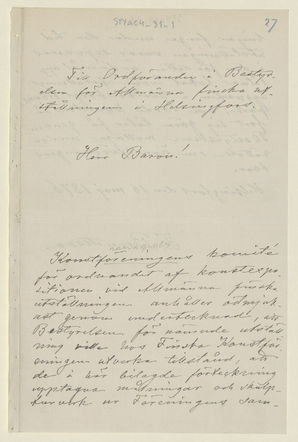 27
Till Ordföranden i Besty-
elsen för Allmänna finska ut-
ställningen i Helsingfors.
Herr Baron!
Konstföreningens komité
för ordnandet af konstexpo-
sitionen vid Allmänna finska
utställningen anhåller ödmjuk-
ast genom undertecknad, att
Bestyrelsen för nämnde utställ-
ning ville hos Finska Konstför-
eningen utverka tillstånd, att
de i här bilagda förteckning
upptagna målningar och skulp-
turverk ur Föreningens sam-